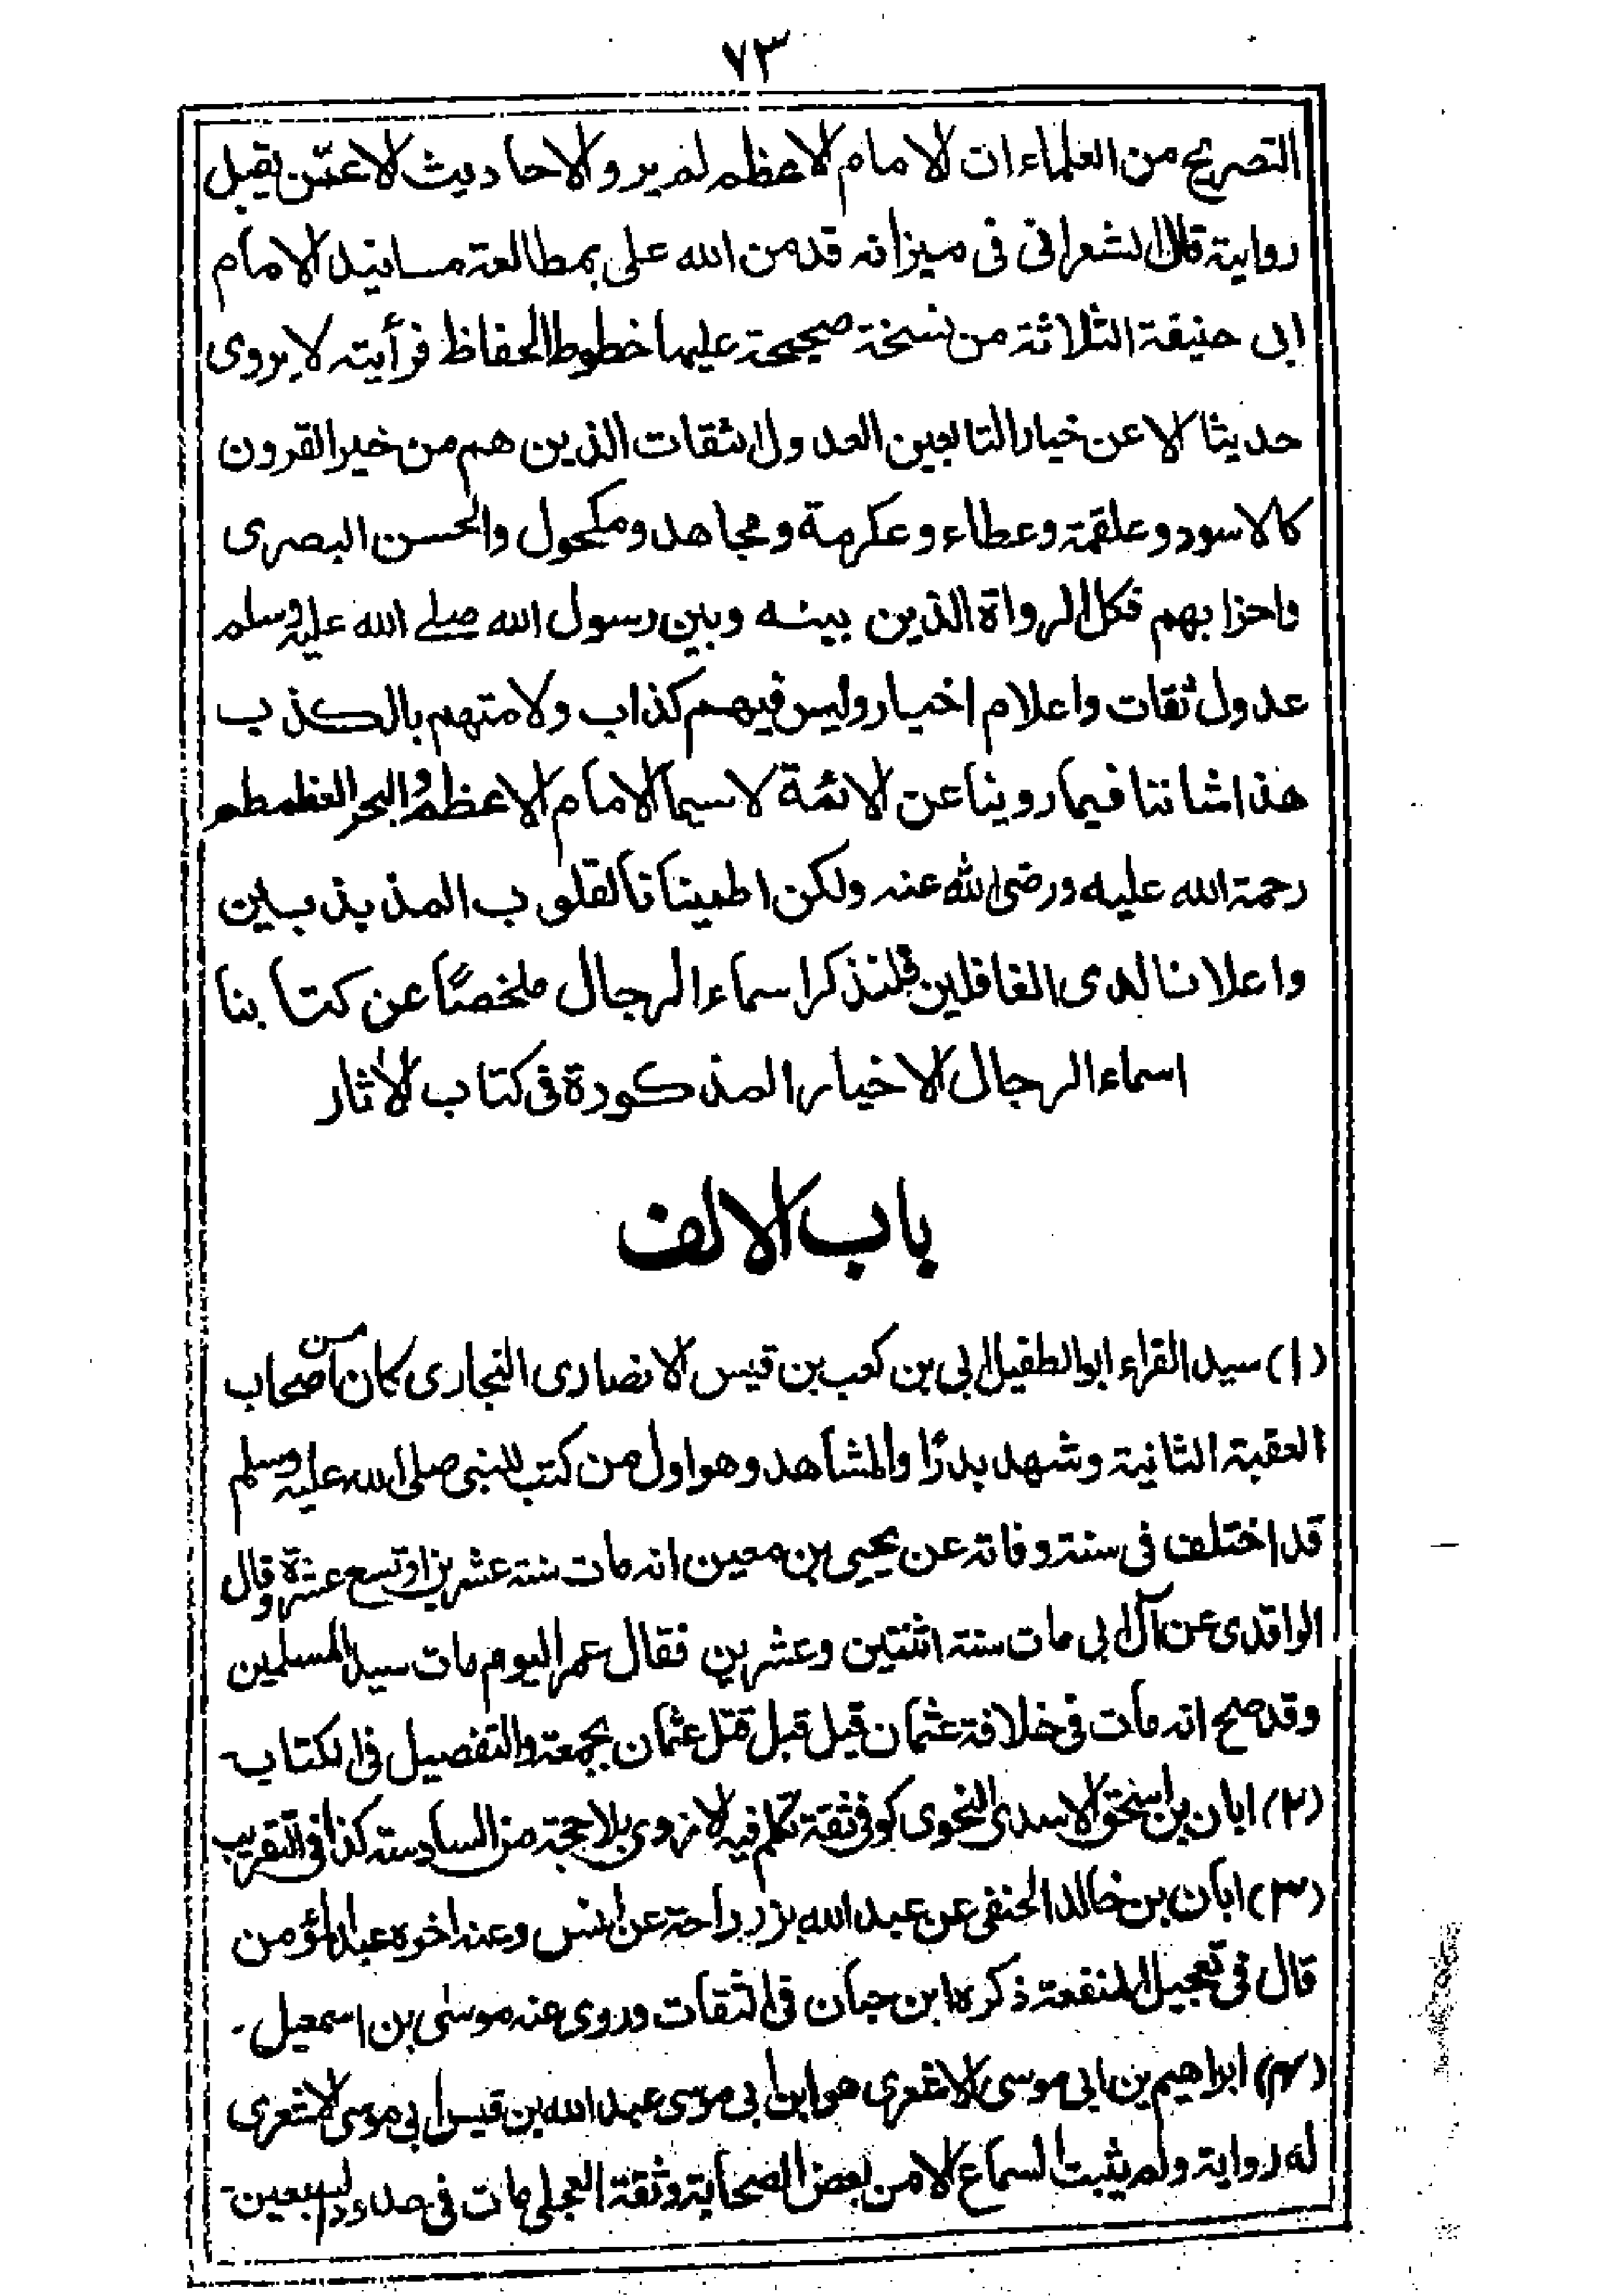 ٧٣
التصريح من العلماء ان الامام الاعظم لم يرو الاحاديث الا عمّن يقبل
رواية قال الشعرانى فى ميزانه قد من الله على بمطالعة مسانيد الامام
ابى حنيفة الثلاثة من نسخة صحيحة عليها خطوط الحفاظ فرأيته لا يروى
حديثا الا عن خيار التابعين العدول الثقات الذين هم من خير القرون
كالاسود وعلقمة وعطاء وعكرمة ومجاهد ومكحول والحسن البصرى
واحزابهم فكل الرواة الذين بينه وبين رسول الله صلے الله عليه وسلم
عدول ثقات واعلام اخيار وليس فيهم كذاب ولا متهم بالكذب
هذا شاننا فيما روينا عن الائمة لا سيما الامام الاعظم والبحر الغطمطم
رحمة الله عليه ورضى الله عنه ولكن اطمينانا لقلوب المذبذبين
واعلانا لدى الغافلين فلنذكر اسماء الرجال ملخصًا عن كتابنا
اسماء الرجال الاخيار المذكورة فى كتاب الاٰثار
باب الالف
(١) سيد القراء ابو الطفيل ابى بن كعب بن قيس الانصارى النجارى كان من اصحاب
العقبة الثانية وشهد بدرًا والمشاهد وهو اول من كتب للنبى صلى الله عليه وسلم
قد اختلف فى سنة وفاته عن يحيى بن معين انه مات سنة عشرين او تسع عشرة وقال
الواقدى عن آل ابى مات سنة اثنتين وعشرين فقال عمر اليوم مات سيد المسلمين
وقد صح انه مات فى خلافة عثمان قيل قبل قتل عثمان بجمعة والتفصيل فى الكتاب۔
(٢) ابان بن اسحٰق الاسدى النحوى كوفى ثقة تكلم فيه الازدى بلا حجة من السادسة كذا فى التقريب
(٣) ابان بن خالد الحنفى عن عبد الله بن رواحة عن انس وعنه اخوه عبد المؤمن
قال فى تعجيل المنفعة ذكره ابن حبان فى الثقات وروى عنه موسٰى بن اسمعيل۔
(٤) ابراهيم بن ابى موسى الاشعرى هو ابن ابى موسى عبد الله بن قيس ابى موسى الاشعرى
له رواية ولم يثبت السماع الا من بعض الصحابة وثقة العجلى مات فى حدود السبعين۔